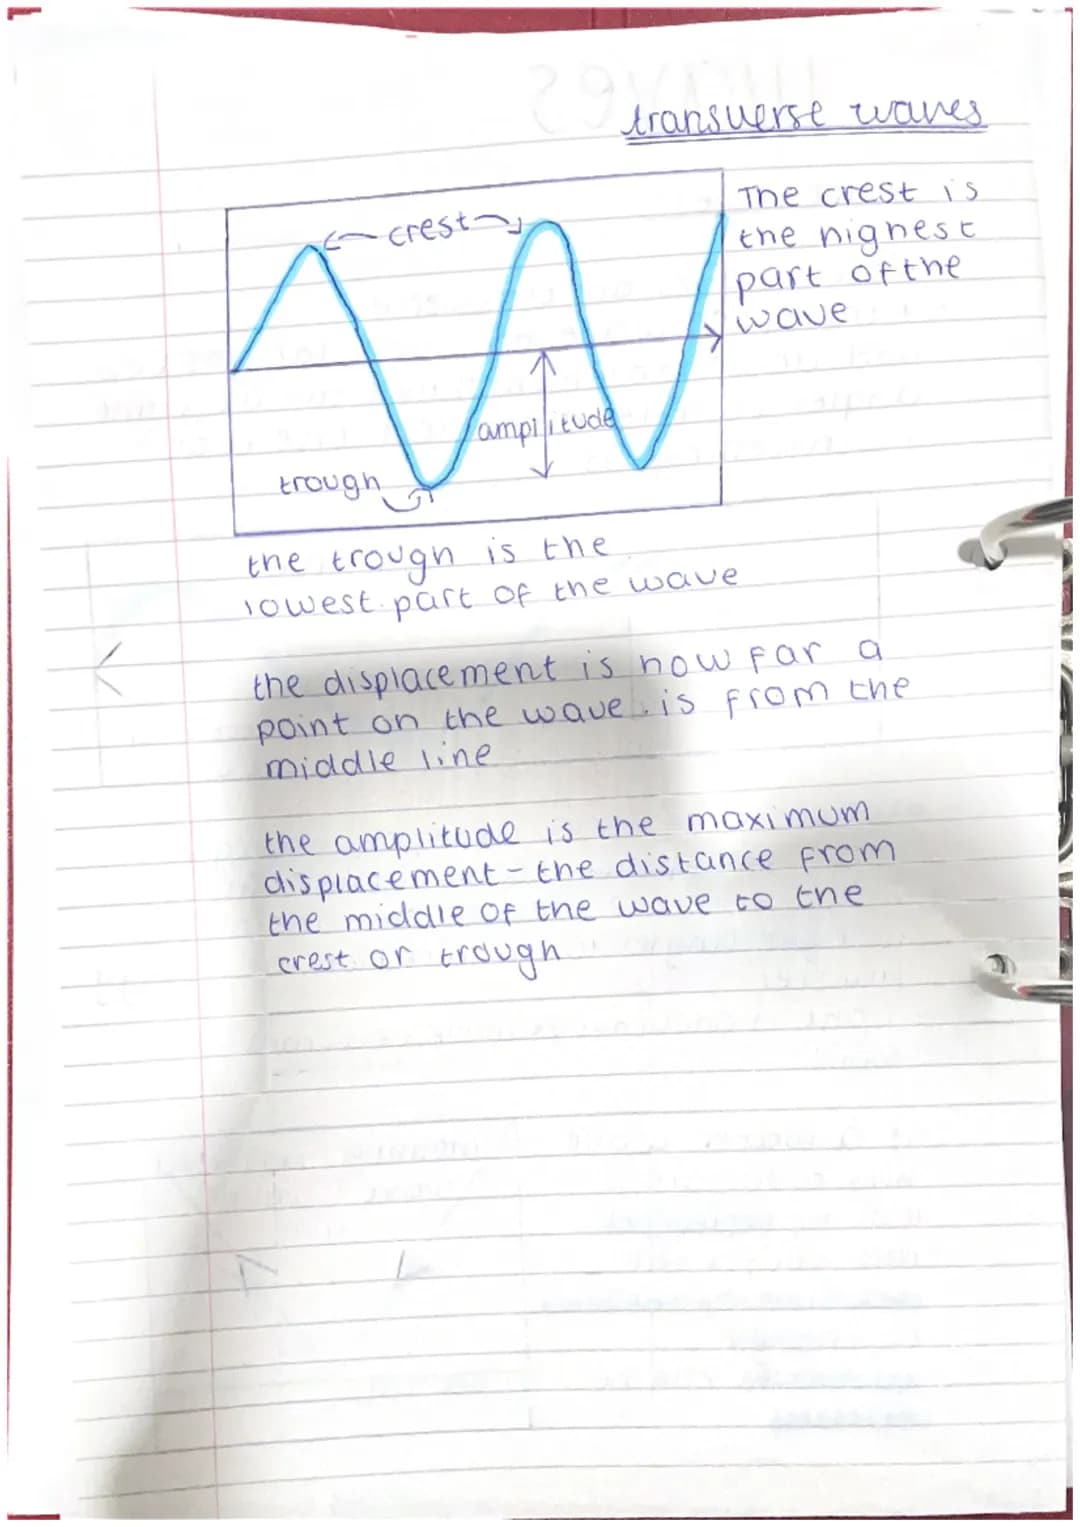 transverse waves
crest
The crest is
the highest
part of the
wave
amplitude
trough
the trough is the
lowest part of the wave
the displacement is how far a
point on the wave is from the
middle line
the amplitude is the maximum
displacement - the distance from
the middle of the wave to the
crest or trough